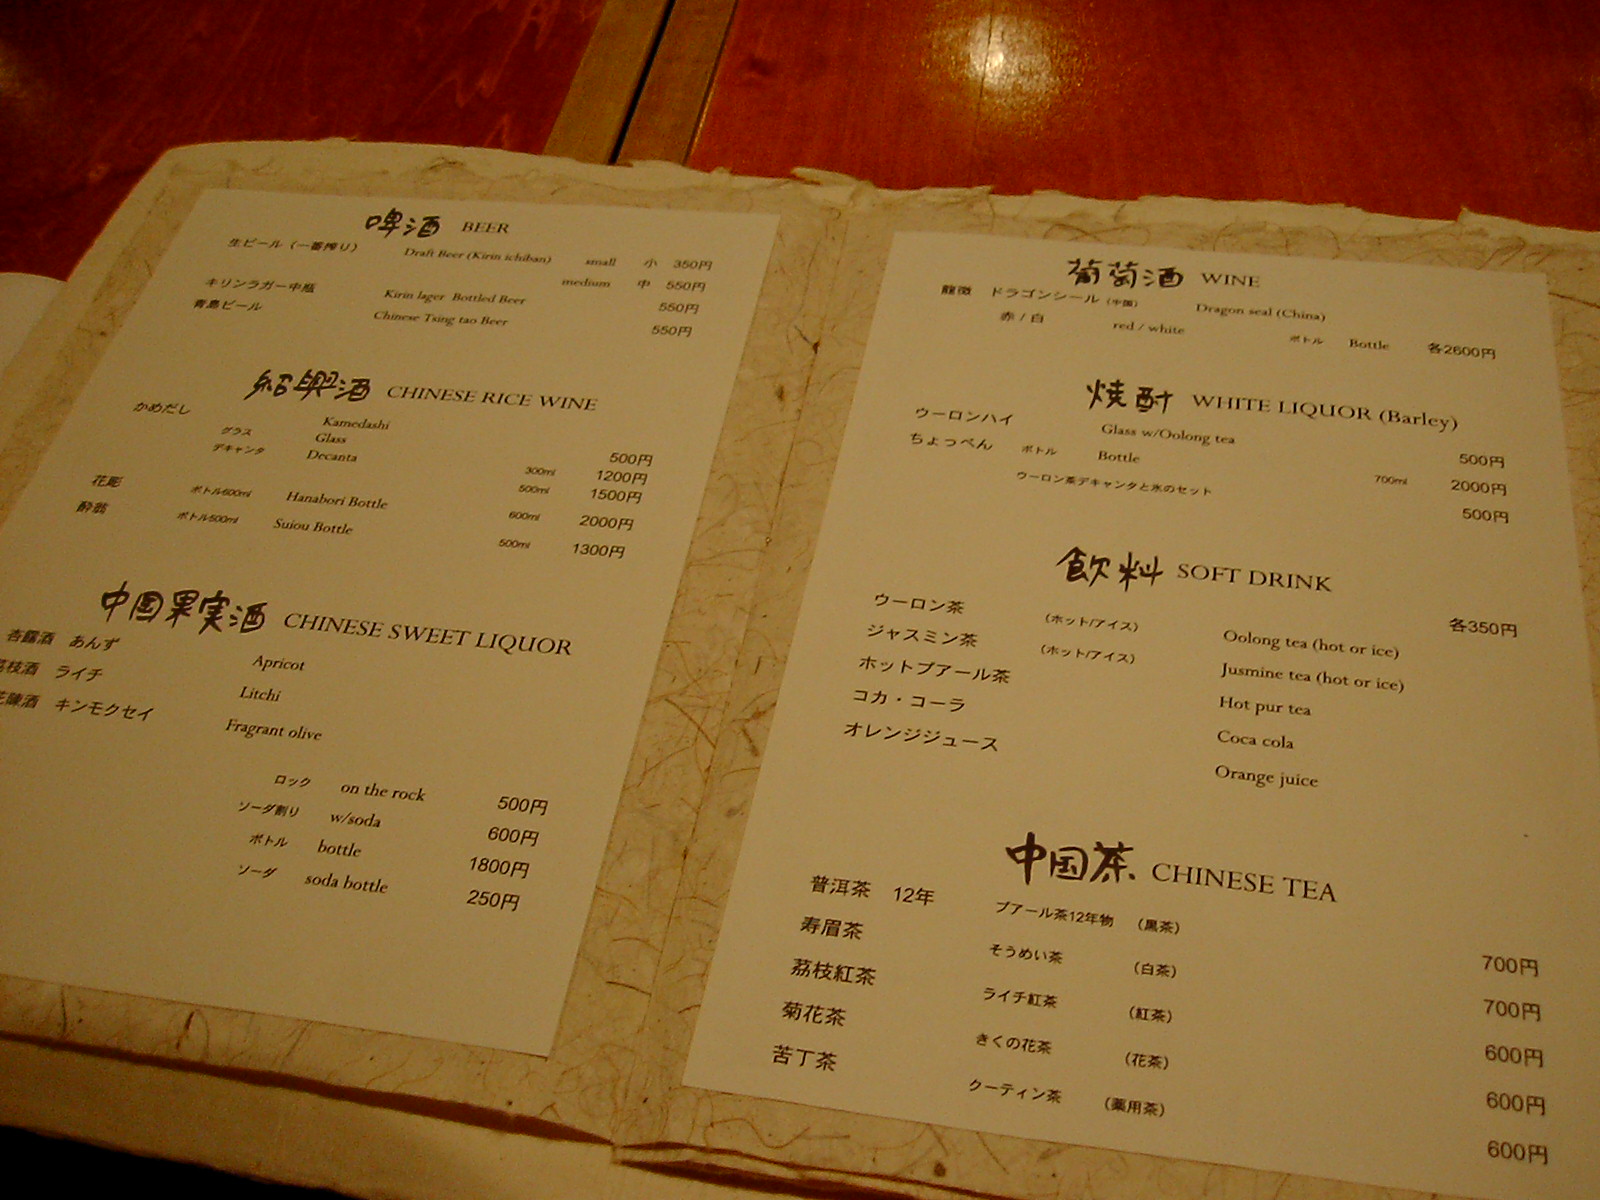 啤酒 BEER
生ビール（一番搾り） Draft Beer (Kirin ichiban) small 小 350円
medium 中 550円
キリンラガー中瓶 Kirin lager Bottled Beer 550円
青島ビール Chinese Tsing tao Beer 550円
紹興酒 CHINESE RICE WINE
かめだし Kamedashi
グラス Glass 500円
デキャンタ Decanta 300ml 1200円
500ml 1500円
花彫 ボトル600ml Hanabori Bottle 600ml 2000円
酔翁 ボトル500ml Suiou Bottle 500ml 1300円
中国果実酒 CHINESE SWEET LIQUOR
杏露酒 あんず Apricot
茘枝酒 ライチ Litchi
陳酒 キンモクセイ Fragrant olive
ロック on the rock 500円
ソーダ割り w/soda 600円
ボトル bottle 1800円
ソーダ soda bottle 250円
葡萄酒 WINE
龍徴 ドラゴンシール（中国） Dragon seal (China)
赤 / 白 red / white ボトル Bottle 各2600円
焼酎 WHITE LIQUOR (Barley)
ウーロンハイ Glass w/Oolong tea 500円
ちょっぺん ボトル Bottle 700ml 2000円
ウーロン茶デキャンタと氷のセット 500円
飲料 SOFT DRINK
各350円
ウーロン茶 （ホット/アイス） Oolong tea (hot or ice)
ジャスミン茶 （ホット/アイス） Jusmine tea (hot or ice)
ホットプアール茶 Hot pur tea
コカ・コーラ Coca cola
オレンジジュース Orange juice
中国茶 CHINESE TEA
普洱茶 12年 プアール茶12年物 （黒茶） 700円
寿眉茶 そうめい茶 （白茶） 700円
茘枝紅茶 ライチ紅茶 （紅茶） 600円
菊花茶 きくの花茶 （花茶） 600円
苦丁茶 クーティン茶 （薬用茶） 600円